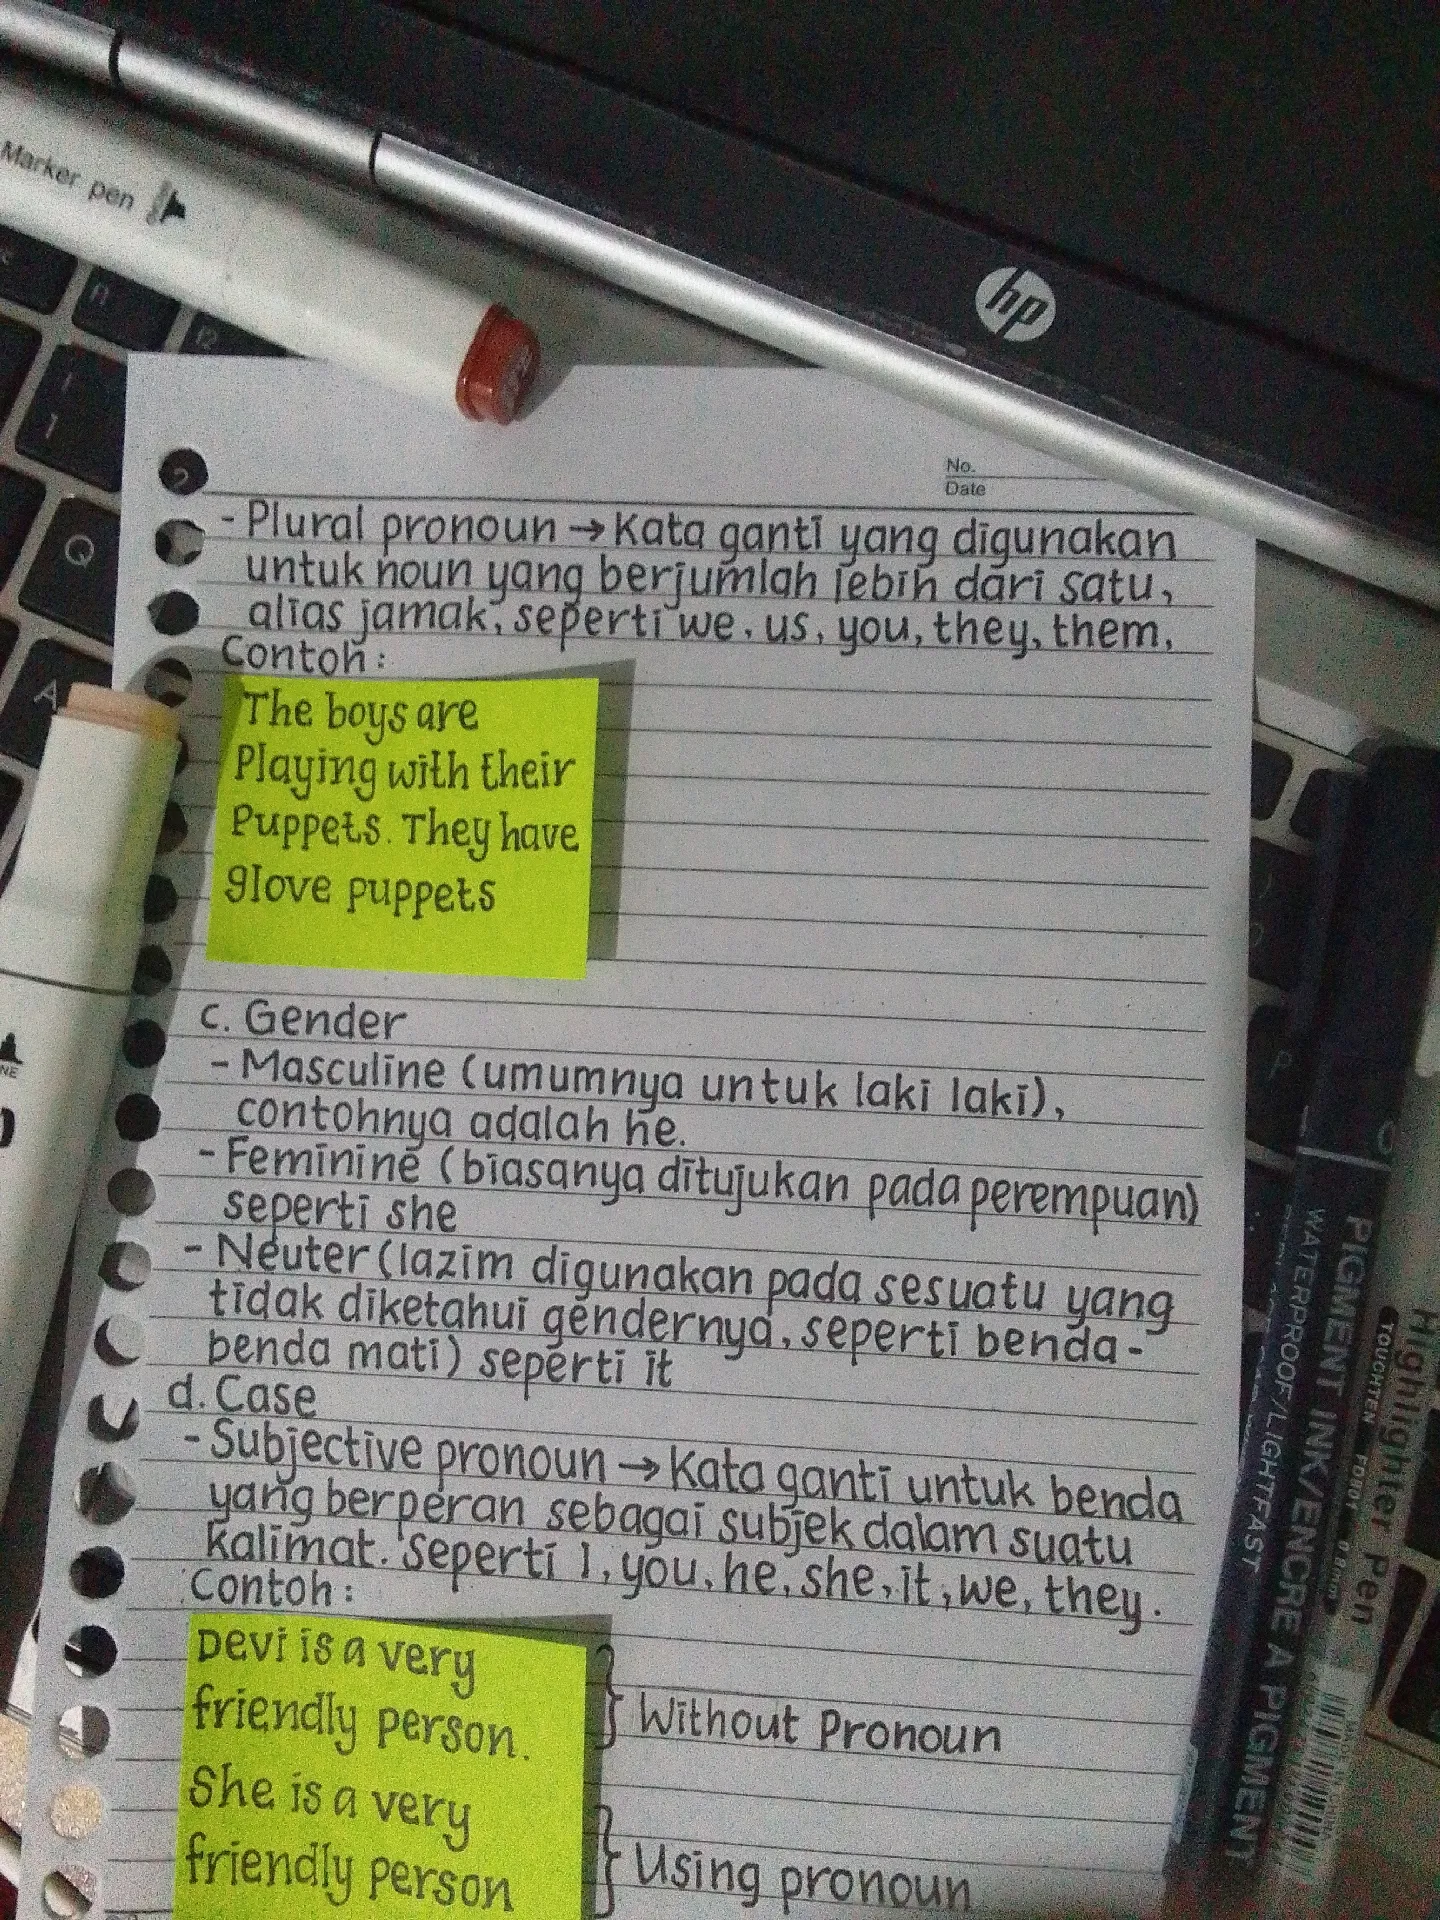 Marker pen
hp
No.
Date
- Plural pronoun → Kata ganti yang digunakan
untuk noun yang berjumlah lebih dari satu,
alias jamak, seperti we, us, you, they, them,
Contoh:
The boys are
Playing with their
Puppets. They have
glove puppets
c. Gender
- Masculine (umumnya untuk laki laki),
contohnya adalah he.
- Feminine (biasanya ditujukan pada perempuan)
seperti she
- Neuter (lazim digunakan pada sesuatu yang
tidak diketahui gendernya, seperti benda-
benda mati) seperti it
d. Case
- Subjective pronoun → Kata ganti untuk benda
yang berperan sebagai subjek dalam suatu
kalimat. Seperti I, you, he, she, it, we, they.
Contoh:
Devi is a very
friendly person.
} Without Pronoun
She is a very
friendly person
} Using pronoun
PIGMENT INK/ENCRE A PIGMENT
WATERPROOF/LIGHTFAST
Highlighter Pen
TOUCHTEN
Q
A
P